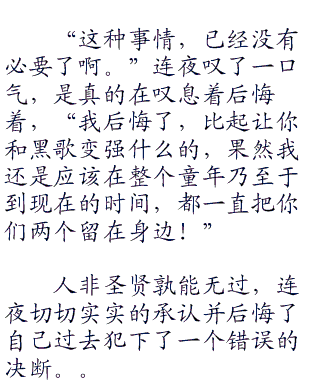 “这种事情，已经没有
必要了啊。”连夜叹了一口
气，是真的在叹息着后悔
着，“我后悔了，比起让你
和黑歌变强什么的，果然我
还是应该在整个童年乃至于
到现在的时间，都一直把你
们两个留在身边！”
人非圣贤孰能无过，连
夜切切实实的承认并后悔了
自己过去犯下了一个错误的
决断。。